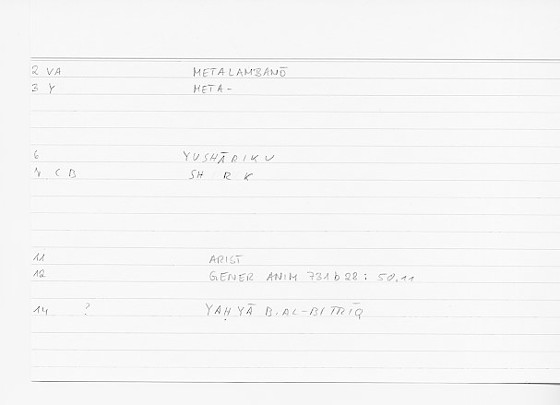 2 VA METALAMBANŌ
3 Y META-
6 YUSHĀRIKU
4 C B SH R K
11 ARIST
12 GENER ANIM 731b22: 50,11
14 ? YAḤYĀ B. AL-BIṬRĪQ